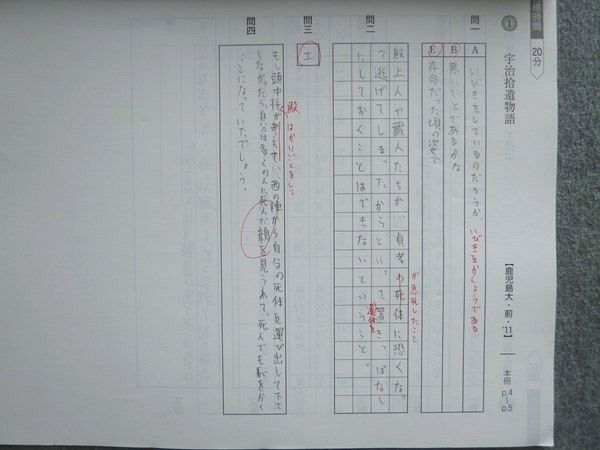 標時間 20分
1 宇治拾遺物語
【鹿児島大・前・'11】
本冊 p.4～p.5
問一
A いびきをしているのだろうか。
いびきをかくようである。
B 悪いことであるかな
E 存命だった頃の姿で
問二
殿上人や蔵人たちが、貞孝の死体に恐くな
が急死したこと
って逃げてしまったからといって置きっぱなし
遺体を
にしておくことはできないということ。
問三
エ
問四
もし頭中将が考えて、西の陣から自分の死体を運び出して下で
殿 はかりごとをして
なかったら、自分は多くの人に死んだ顔を見られて、死人でも恥をかく
ことになっていたでしょう。